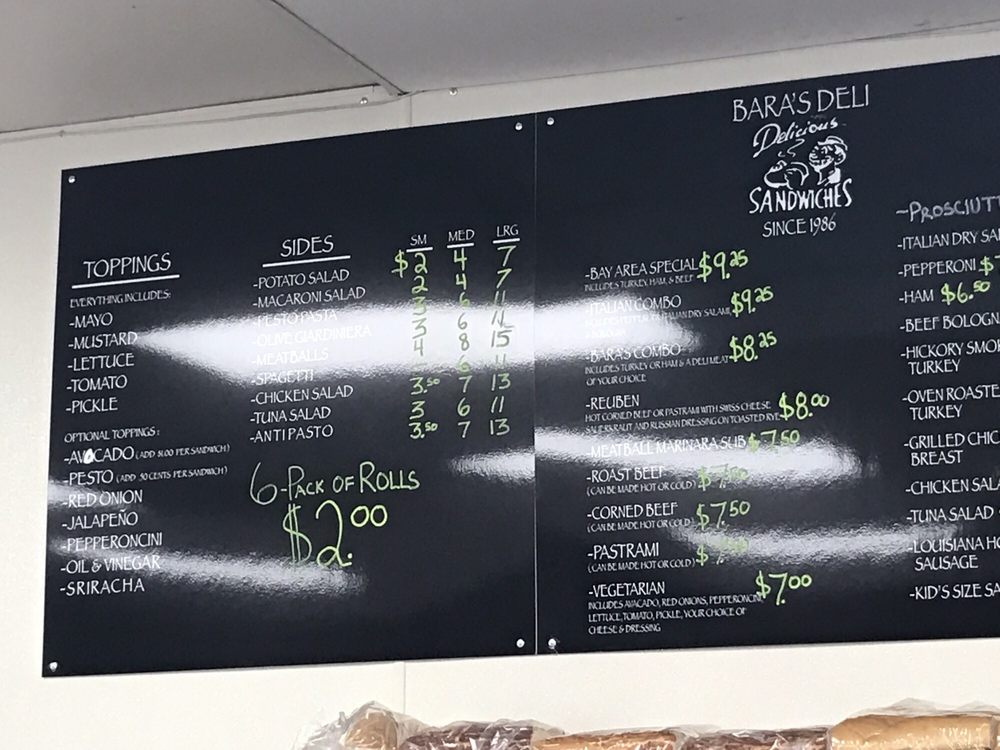 TOPPINGS
EVERYTHING INCLUDES:
-MAYO
-MUSTARD
-LETTUCE
-TOMATO
-PICKLE
OPTIONAL TOPPINGS:
-AVOCADO (ADD $1.00 PER SANDWICH)
-PESTO (ADD .50 CENTS PER SANDWICH)
-RED ONION
-JALAPEÑO
-PEPPERONCINI
-OIL & VINEGAR
-SRIRACHA
SIDES SM MED LRG
-POTATO SALAD $2 4 7
-MACARONI SALAD 2 4 7
-PESTO PASTA 3 6 11
-OLIVE GIARDINIERA 3 6 11
-MEATBALLS 4 8 15
-SPAGETTI 6 11
-CHICKEN SALAD 3.50 7 13
-TUNA SALAD 3 6 11
-ANTI PASTO 3.50 7 13
6-PACK OF ROLLS
$2.00
BARA'S DELI
Delicious
SANDWICHES
SINCE 1986
-BAY AREA SPECIAL $9.25
INCLUDES TURKEY, HAM, & BEEF
-ITALIAN COMBO $9.25
ITALIAN DRY SALAMI,
-BARA'S COMBO $8.25
INCLUDES TURKEY OR HAM & A DELI MEAT
OF YOUR CHOICE
-REUBEN $8.00
HOT CORNED BEEF OR PASTRAMI WITH SWISS CHEESE,
SAUERKRAUT AND RUSSIAN DRESSING ON TOASTED RYE
-MEATBALL MARINARA SUB $7.50
-ROAST BEEF $7.50
(CAN BE MADE HOT OR COLD)
-CORNED BEEF $7.50
(CAN BE MADE HOT OR COLD)
-PASTRAMI $7.50
(CAN BE MADE HOT OR COLD)
-VEGETARIAN $7.00
INCLUDES AVACADO, RED ONIONS, PEPPERONCINI,
LETTUCE, TOMATO, PICKLE, YOUR CHOICE OF
CHEESE & DRESSING
~PROSCIUTT
-ITALIAN DRY SA
-PEPPERONI $
-HAM $6.50
-BEEF BOLOGN
-HICKORY SMO
TURKEY
-OVEN ROASTE
TURKEY
-GRILLED CHIC
BREAST
-CHICKEN SALA
-TUNA SALAD
-LOUISIANA HO
SAUSAGE
-KID'S SIZE SA